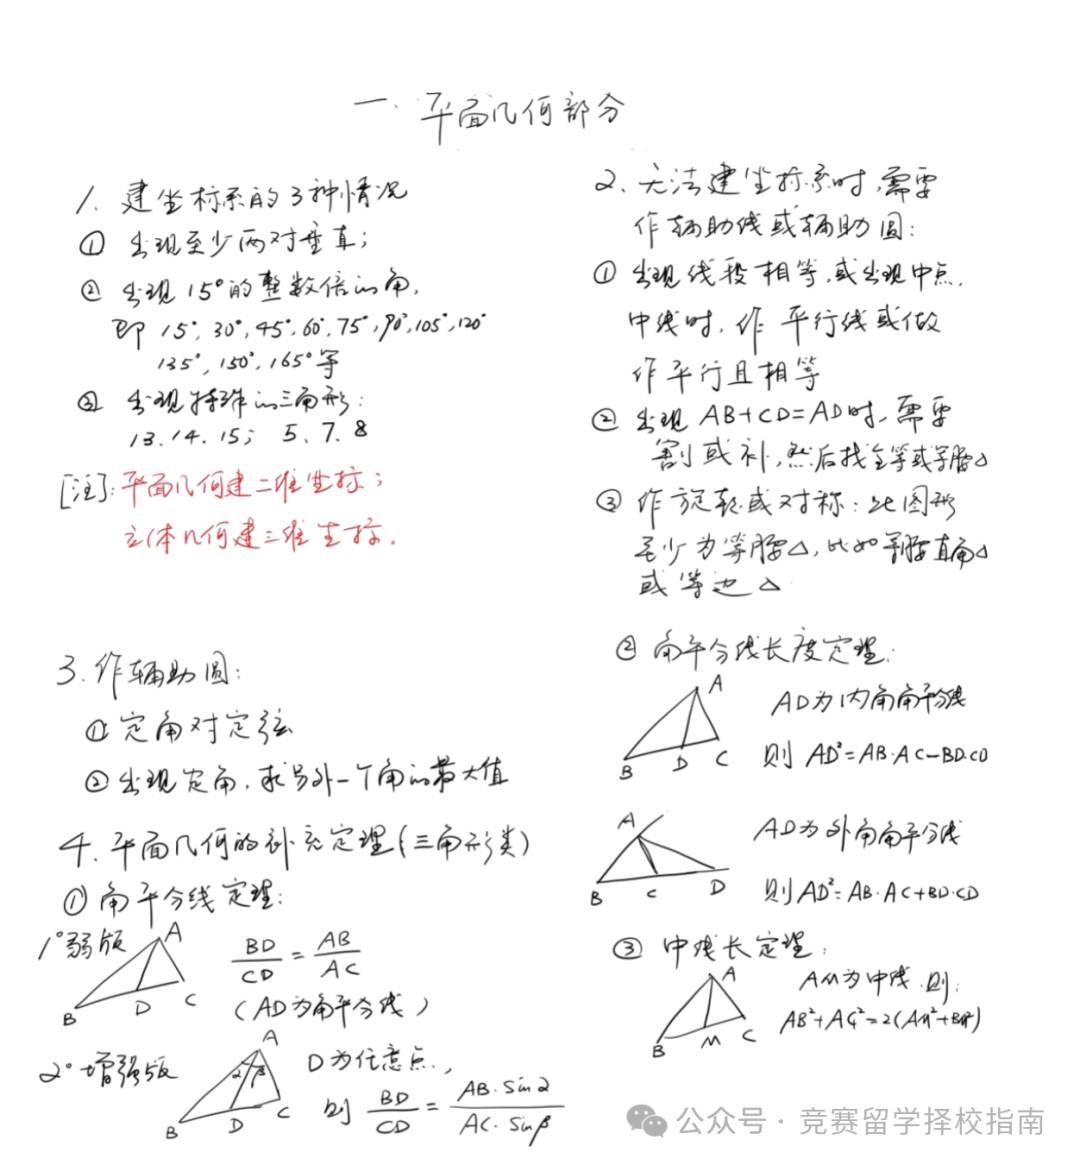 一.平面几何部分
1.建坐标系的3种情况
① 出现至少两对垂直;
② 出现15°的整数倍的角,
即 15°,30°,45°,60°,75°,90°,105°,120°
135°,150°,165°等
③ 出现特殊的三角形:
13.14.15; 5、7、8
[注]:平面几何建二维坐标;
立体几何建三维坐标.
2.无法建坐标系时,需要
作辅助线或辅助圆:
① 出现线段相等,或出现中点,
中线时,作平行线或做
作平行且相等
② 出现AB+CD=AD时,需要
割或补,然后找全等或等腰△
③ 作旋转或对称:此图形
至少为等腰△,比如等腰直角△
或等边△
3.作辅助圆:
① 定角对定弦
② 出现定角,求另外一个角的最大值
4.平面几何的补充定理(三角形类)
① 角平分线定理:
1°弱版
A
B
D
C
BD/CD = AB/AC
(AD为角平分线)
2°增强版
A
α β
B
D
C
D为任意点,
则 BD/CD = AB·Sinα/AC·Sinβ
② 角平分线长度定理:
A
B
D
C
AD为内角角平分线
则 AD²=AB·AC-BD·CD
A
B
C
D
AD为外角角平分线
则AD²=AB·AC+BD·CD
③ 中线长定理:
A
B
M
C
AM为中线,则:
AB²+AC²=2(AM²+BM²)
公众号·竞赛留学择校指南